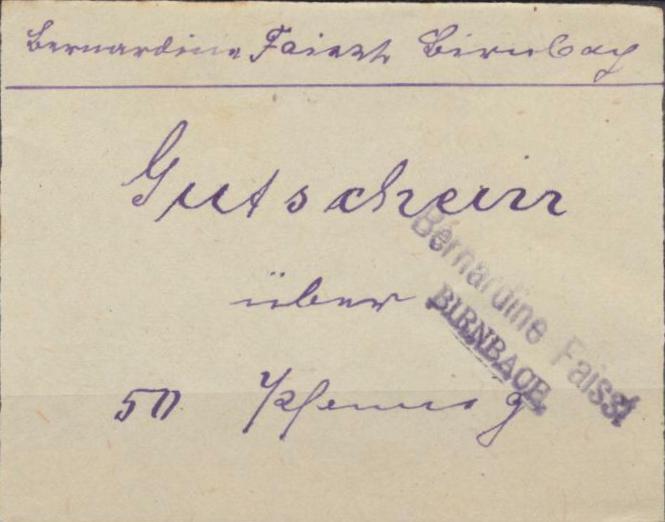 Bernardine Faisst Birnbach
Gutschein
über
50 Pfennig
Bernardine Faisst
BIRNBACH